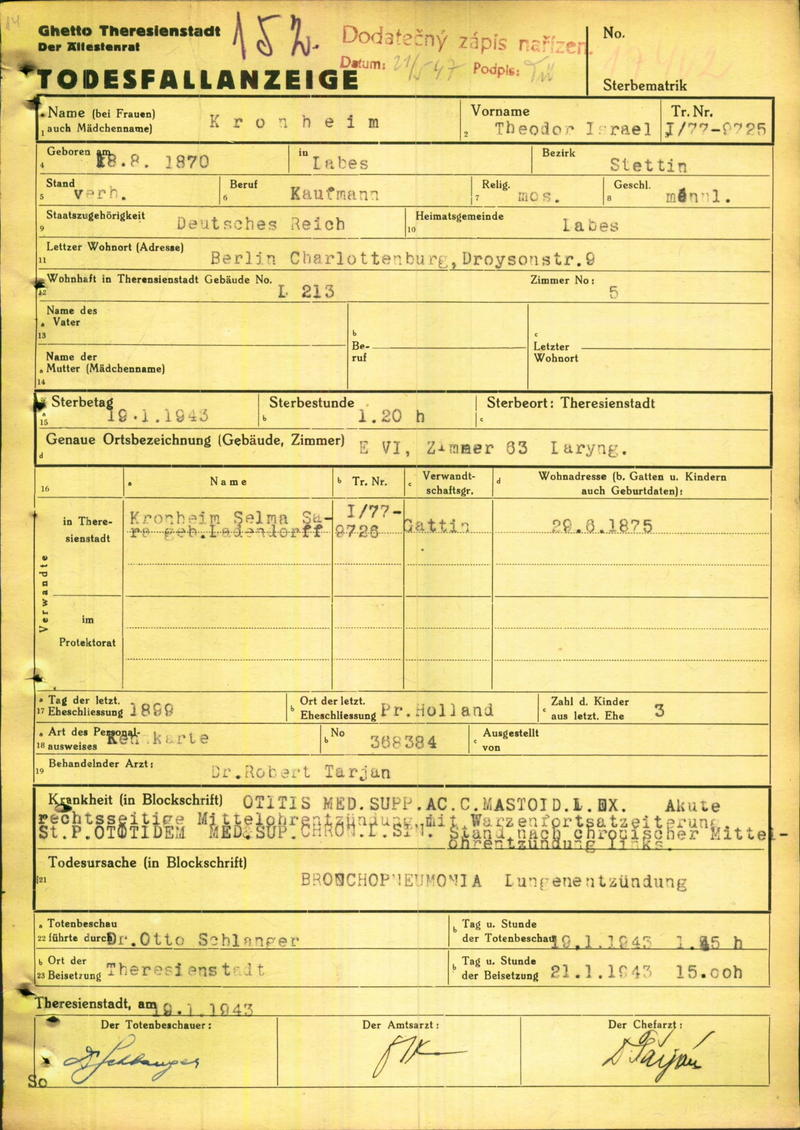 14
Ghetto Theresienstadt
Der Ältestenrat
152.
Dodatečný zápis nařízen.
Datum: 21/5 47 Podpis:
No.
17442
TODESFALLANZEIGE
Sterbematrik
Name (bei Frauen)
1 auch Mädchenname) Kronheim
Vorname
2 Theodor Israel
Tr. Nr.
I/77-9725
Geboren am
4 18.8. 1870
in
Labes
Bezirk
Stettin
Stand
5 verh.
Beruf
6 Kaufmann
Relig.
7 mos.
Geschl.
8 männl.
Staatszugehörigkeit
9 Deutsches Reich
Heimatsgemeinde
10 Labes
Lettzer Wohnort (Adresse)
11 Berlin Charlottenburg, Droysonstr.9
Wohnhaft in Therensienstadt Gebäude No.
12 L 213
Zimmer No:
5
Name des
a Vater
13
b
Be-
ruf
c
Letzter
Wohnort
Name der
a Mutter (Mädchenname)
14
a Sterbetag
15 19.1.1943
Sterbestunde
b 1.20 h
Sterbeort: Theresienstadt
c
Genaue Ortsbezeichnung (Gebäude, Zimmer)
d E VI, Zimmer 63 Laryng.
16
a Name
b Tr. Nr.
c Verwandt-
schaftsgr.
d Wohnadresse (b. Gatten u. Kindern
auch Geburtdaten):
Verwandte
in There-
sienstadt
Kronheim Selma Sa-
ra geb.Ladendorff
I/77-
9726
Gattin
29.6.1875
im
Protektorat
a Tag der letzt.
17 Eheschliessung 1899
b Ort der letzt.
Eheschliessung Pr.Holland
c Zahl d. Kinder
aus letzt. Ehe 3
a Art des Personal-
18 ausweises Kennkarte
b No
368384
c Ausgestellt
von
Behandelnder Arzt:
19 Dr.Robert Tarjan
Krankheit (in Blockschrift) OTITIS MED.SUPP.AC.C.MASTOID.L.DX. Akute
rechtsseitige Mittelohrentzündung mit Warzenfortsatzeiterung
St.P.OTOTIDEM MED.SUP.CHRON.L.SIN. Stand nach chronischer Mittel-
ohrentzündung links.
Todesursache (in Blockschrift)
21 BRONCHOPNEUMONIA Lungenentzündung
a Totenbeschau
22 führte durch Dr.Otto Schlanger
b Tag u. Stunde
der Totenbeschau 19.1.1943 1.45 h
b Ort der
23 Beisetzung Theresienstadt
b Tag u. Stunde
der Beisetzung 21.1.1943 15.ooh
Theresienstadt, am 19.1.1943
Der Totenbeschauer:
Der Amtsarzt:
Der Chefarzt:
Dr Schlanger
Dr Tarján
So